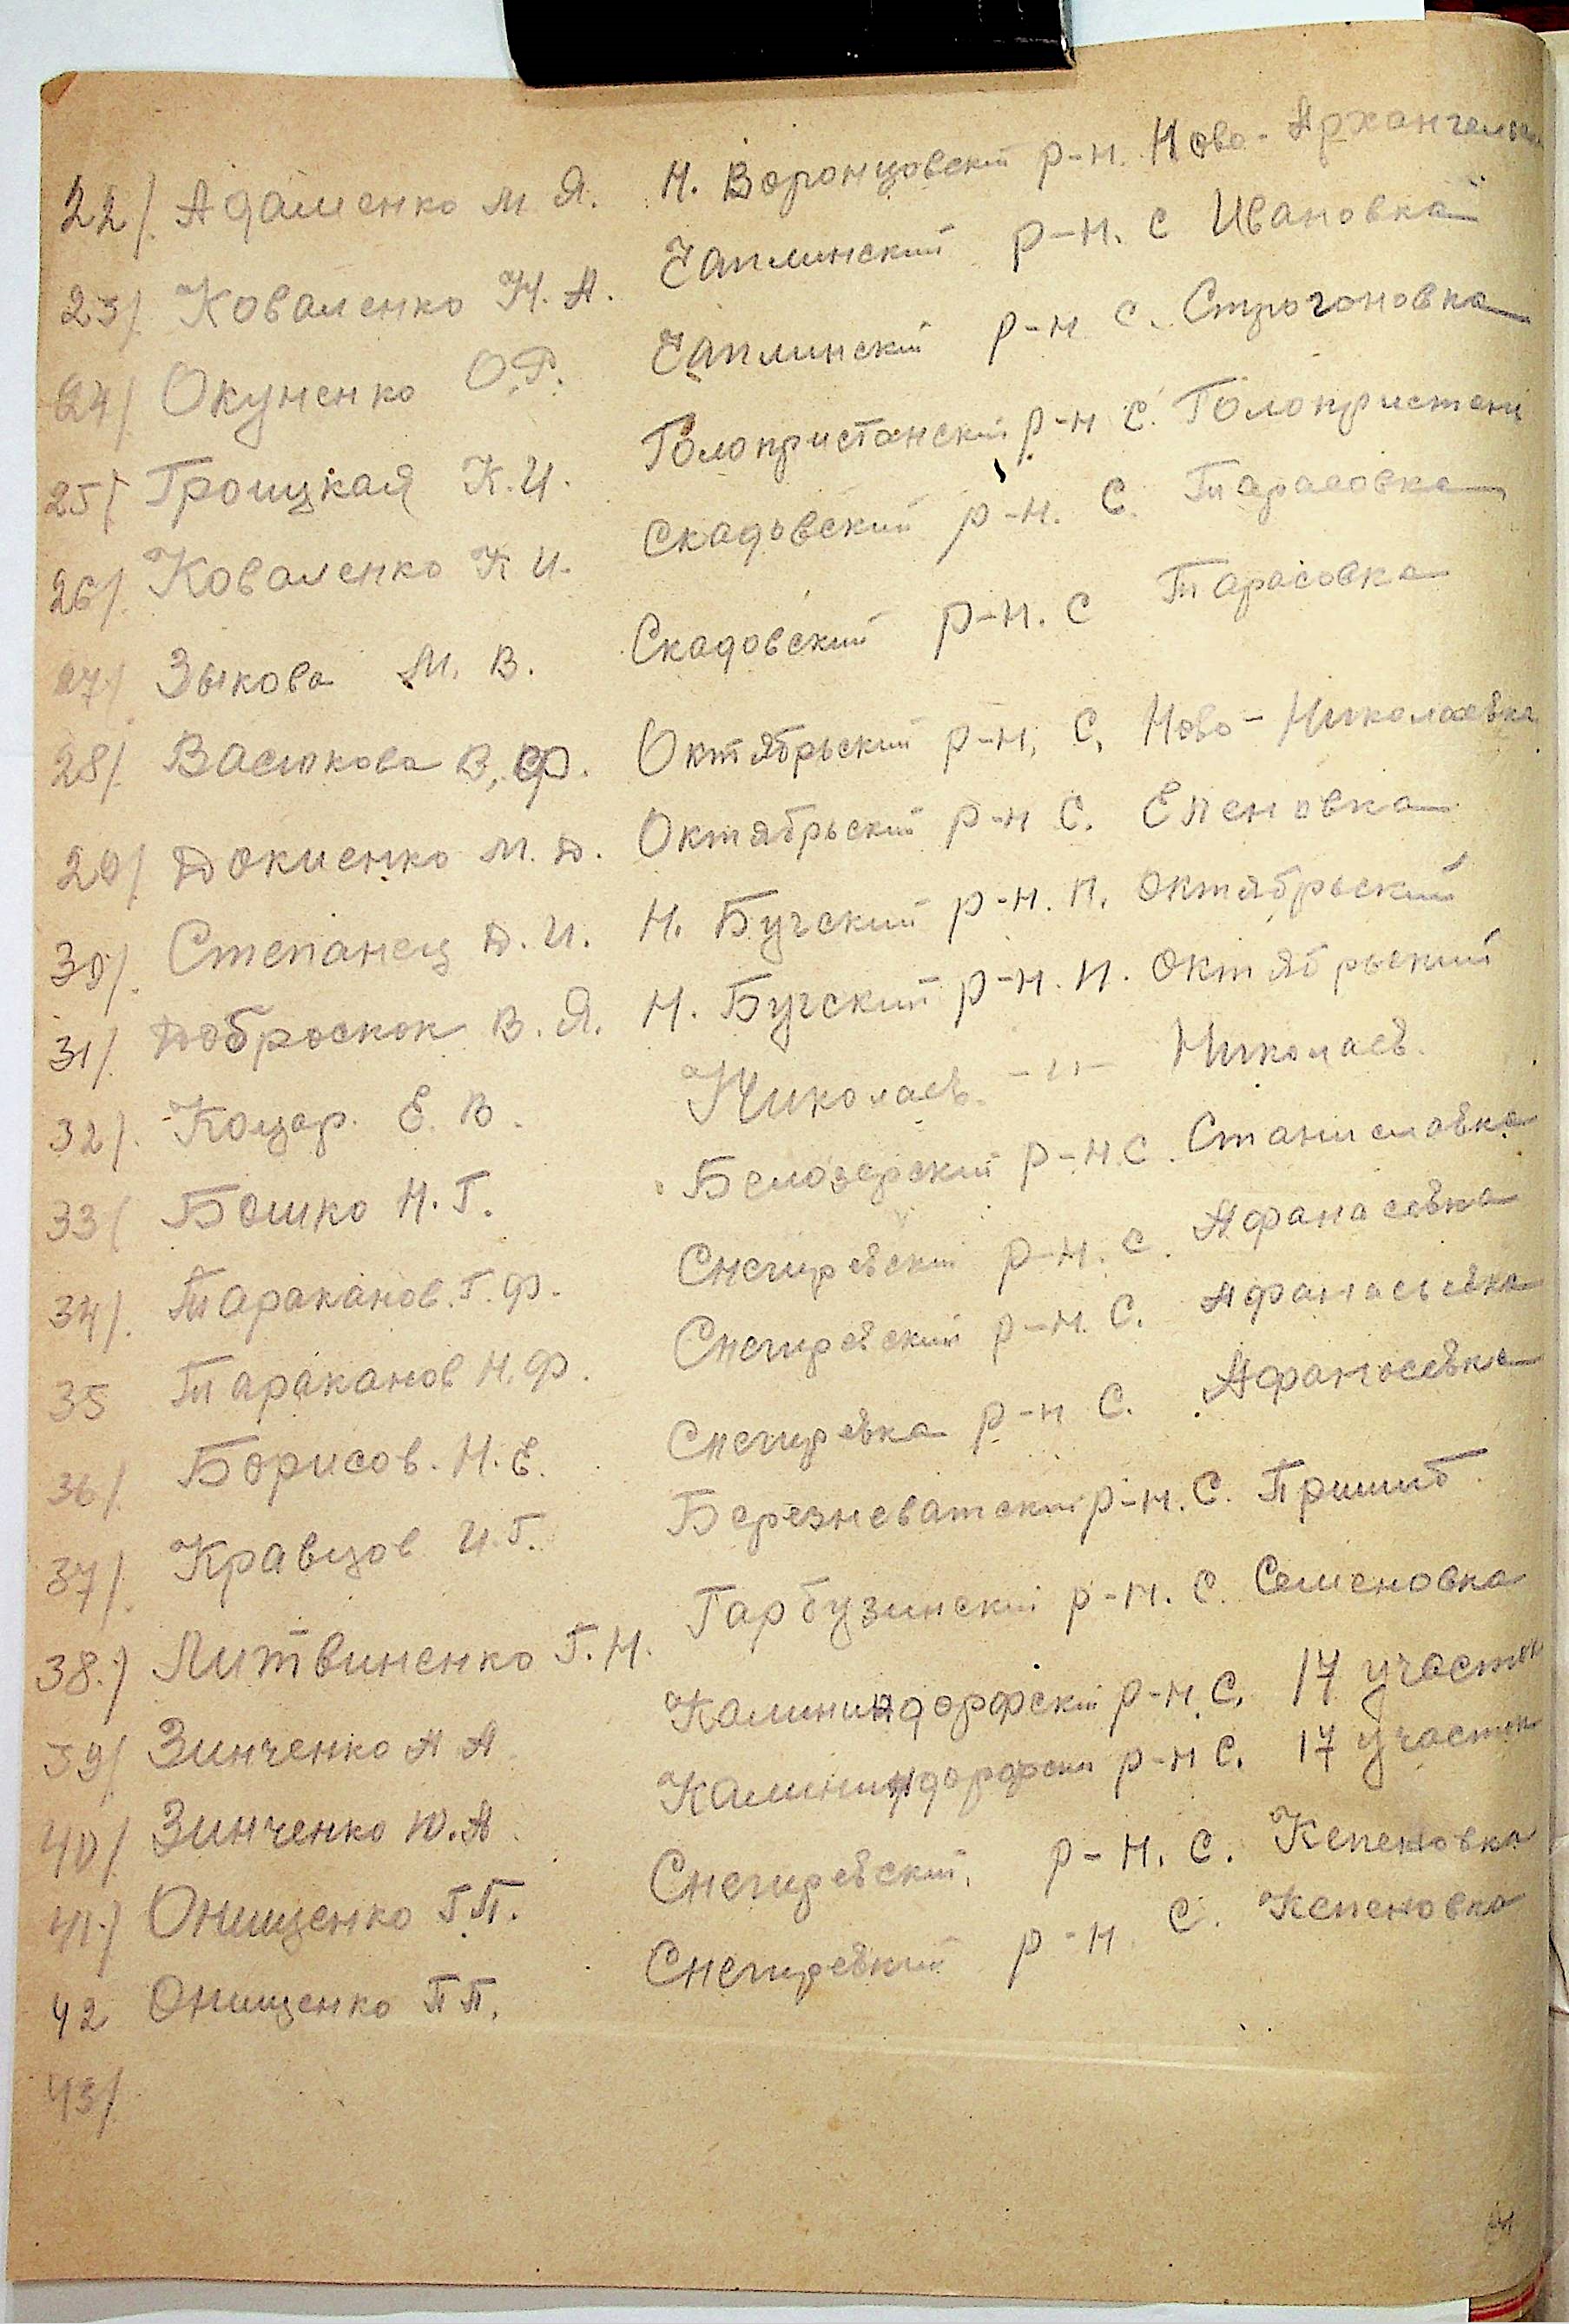 22/. Адаменко М. Я. Н. Воронцовский р-н. Ново-Архангельск
23/. Коваленко Н. А. Чаплинский р-н. с Ивановка
24/ Окуненко О.Г. Чаплинский р-н с. Строгоновка
25/ Троицкая К.И. Голопристанский р-н с. Голопристань
26/. Коваленко К И. Скадовский р-н. с. Тарасовка
27/ Зыкова М. В. Скадовский р-н. с Тарасовка
28/. Васюкова В. Ф. Октябрьский р-н, с, Ново-Николаевка
29/ Докиенко М. Д. Октябрьский р-н с. Еленовка
30/. Степанец Д. И. Н. Бугский р-н. п. Октябрьский
31/. Доброскок В. Я. Н. Бугский р-н. п. Октябрьский
32/. Коцар. Е. В. Николаев. -"- Николаев.
33/ Бошко Н. Г. Белозерский р-н с. Станиславка
34/. Тараканов. Г. Ф. Снегиревский р-н. с. Афанасевка
35 Тараканов Н. Ф. Снегиревский р-н. с. Афанасьевка
36/. Борисов. Н. Е. Снегиревка р-н с. Афанасевка
37/. Кравцов И. Г. Березневатский р-н. с. Пришиб
38./ Литвиненко Г. Н. Гарбузинский р-н. с. Семеновка
39/ Зинченко А А Калининдорфский р-н. с. 17 участок
40/ Зинченко Ю. А Калининдорфски р-н с. 17 участок
41./ Онищенко Г П. Снегиревский, р-н. с. Кепеновка
42 Онищенко П П. Снегиревкий р-н с. Кепеновка
43/.